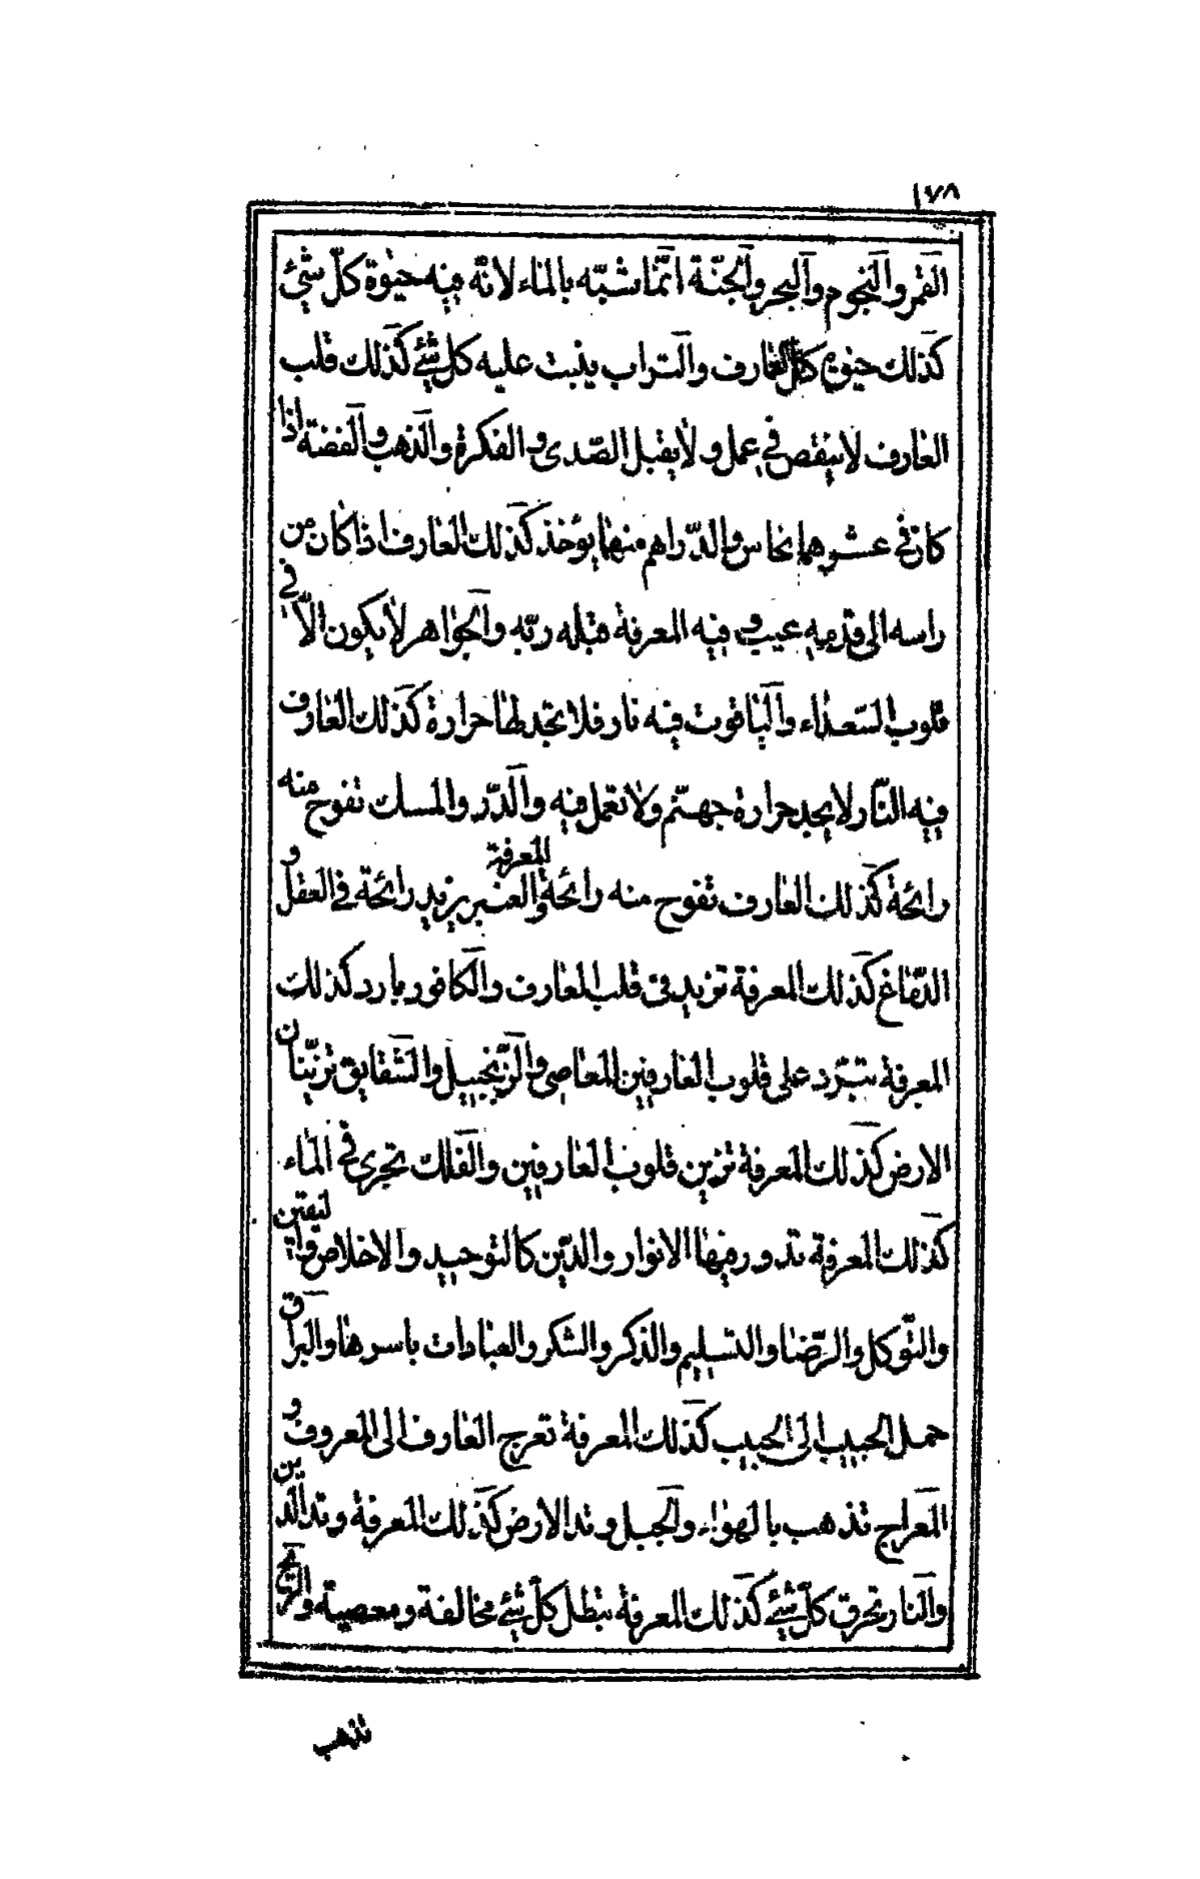 ١٧٨
القمر والنجوم والبحر والجنّة انّما شبّه بالماء لانّه فيه حيوة كلّ شئ
كذلك حيوة كلّ العارف والتراب ينبت عليه كل شئ كذلك قلب
العارف لا ينقص فى عمل ولا يقبل الصّدى و الفكرة والذهب والفضة اذا
كان فى عشرهما نحاس والدّراهم منهما يؤخذ كذلك العارف اذا كان من
راسه الى قدميه عيب و فيه المعرفة قبله ربّه والجواهر لا يكون الّا فى
قلوب السّعداء والياقوت فيه نار فلا تجد لها حرارة كذلك العارف
فيه النّار لا يجد حرارة جهنّم ولا تعمل فيه والدّر والمسك تفوح منه
رائحة كذلك العارف تفوح منه رائحة المعرفة والعنبر يزيد رائحة فى العقل و
الدّماغ كذلك المعرفة تزيد فى قلب العارف والكافور بارد كذلك
المعرفة تتبرّد على قلوب العارفين المعاصى والزّنجبيل والشقايق تزيّنان
الارض كذلك المعرفة تزين قلوب العارفين والفلك تجرى فى الماء
كذلك المعرفة تدور فيها الانوار والدّين كالتوحيد والاخلاص واليقين
والتّوكل والرّضا والتسليم والذكر والشكر والعبادات باسرها والبراق
حمل الحبيب الى الحبيب كذلك المعرفة تعرج العارف الى المعروف و
المعراج تذهب بالهواء والجبل وتد الارض كذلك المعرفة وتد الدّين
والنار تحرق كلّ شئ كذلك المعرفة تبطل كلّ شئ مخالفة ومعصية والرّيح
تذهب